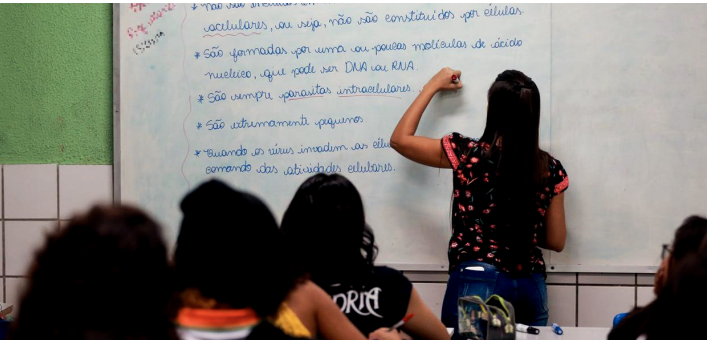 acelulares, ou seja, não são constituídos por células.
* São formadas por uma ou poucas moléculas de ácido
nucleico, que pode ser DNA ou RNA.
* São sempre parasitas intracelulares.
* São extremamente pequenos
* Quando os vírus invadem as célu
comando das atividades celulares.
DRIA